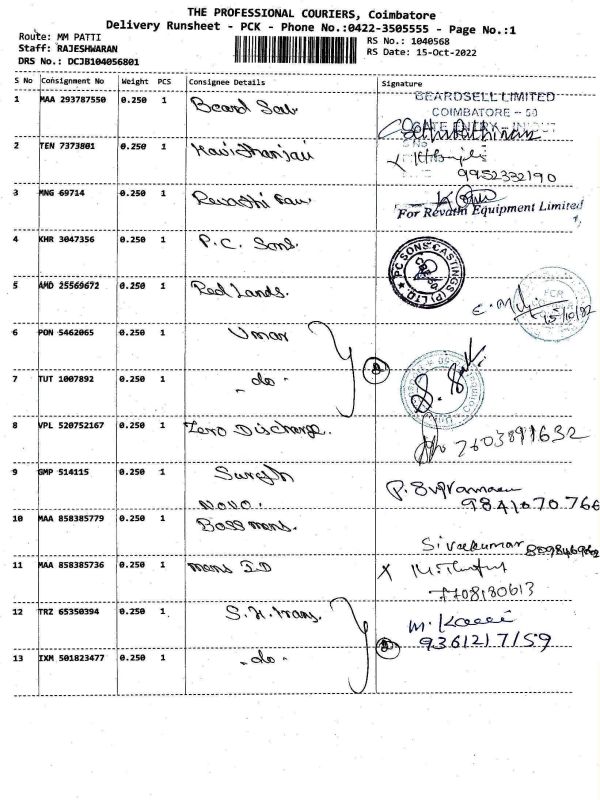 THE PROFESSIONAL COURIERS, Coimbatore
Delivery Runsheet - PCK - Phone No.:0422-3505555 - Page No.:1
Route: MM PATTI
Staff: RAJESHWARAN
DRS No.: DCJB104056801
RS No.: 1040568
RS Date: 15-Oct-2022
S No Consignment No Weight PCS Consignee Details Signature
1 MAA 293787550 0.250 1 Beard Sell
BEARDSELL LIMITED
COIMBATORE - 50
GATE ENTRY - IN/OUT
2 TEN 7373801 0.250 1
9952332190
3 MNG 69714 0.250 1 Revathi
For Revathi Equipment Limited
4 KHR 3047356 0.250 1 P.C. Sons
PC SONS CASTINGS (P) LTD.
5 AMD 25569672 0.250 1 Red Lands.
15/10/22
6 PON 5462065 0.250 1 Umar
2
7 TUT 1007892 0.250 1 - do -
8 VPL 520752167 0.250 1 Zero Discharge.
7603891632
9 GMP 514115 0.250 1 Suresh
9841070766
NOVO.
10 MAA 858385779 0.250 1 Boss mens.
Sivakumar
11 MAA 858385736 0.250 1 mens I.D
7708180613
12 TRZ 65350394 0.250 1 S.H. trans.
9361217159
13 IXM 501823477 0.250 1 - do -
2